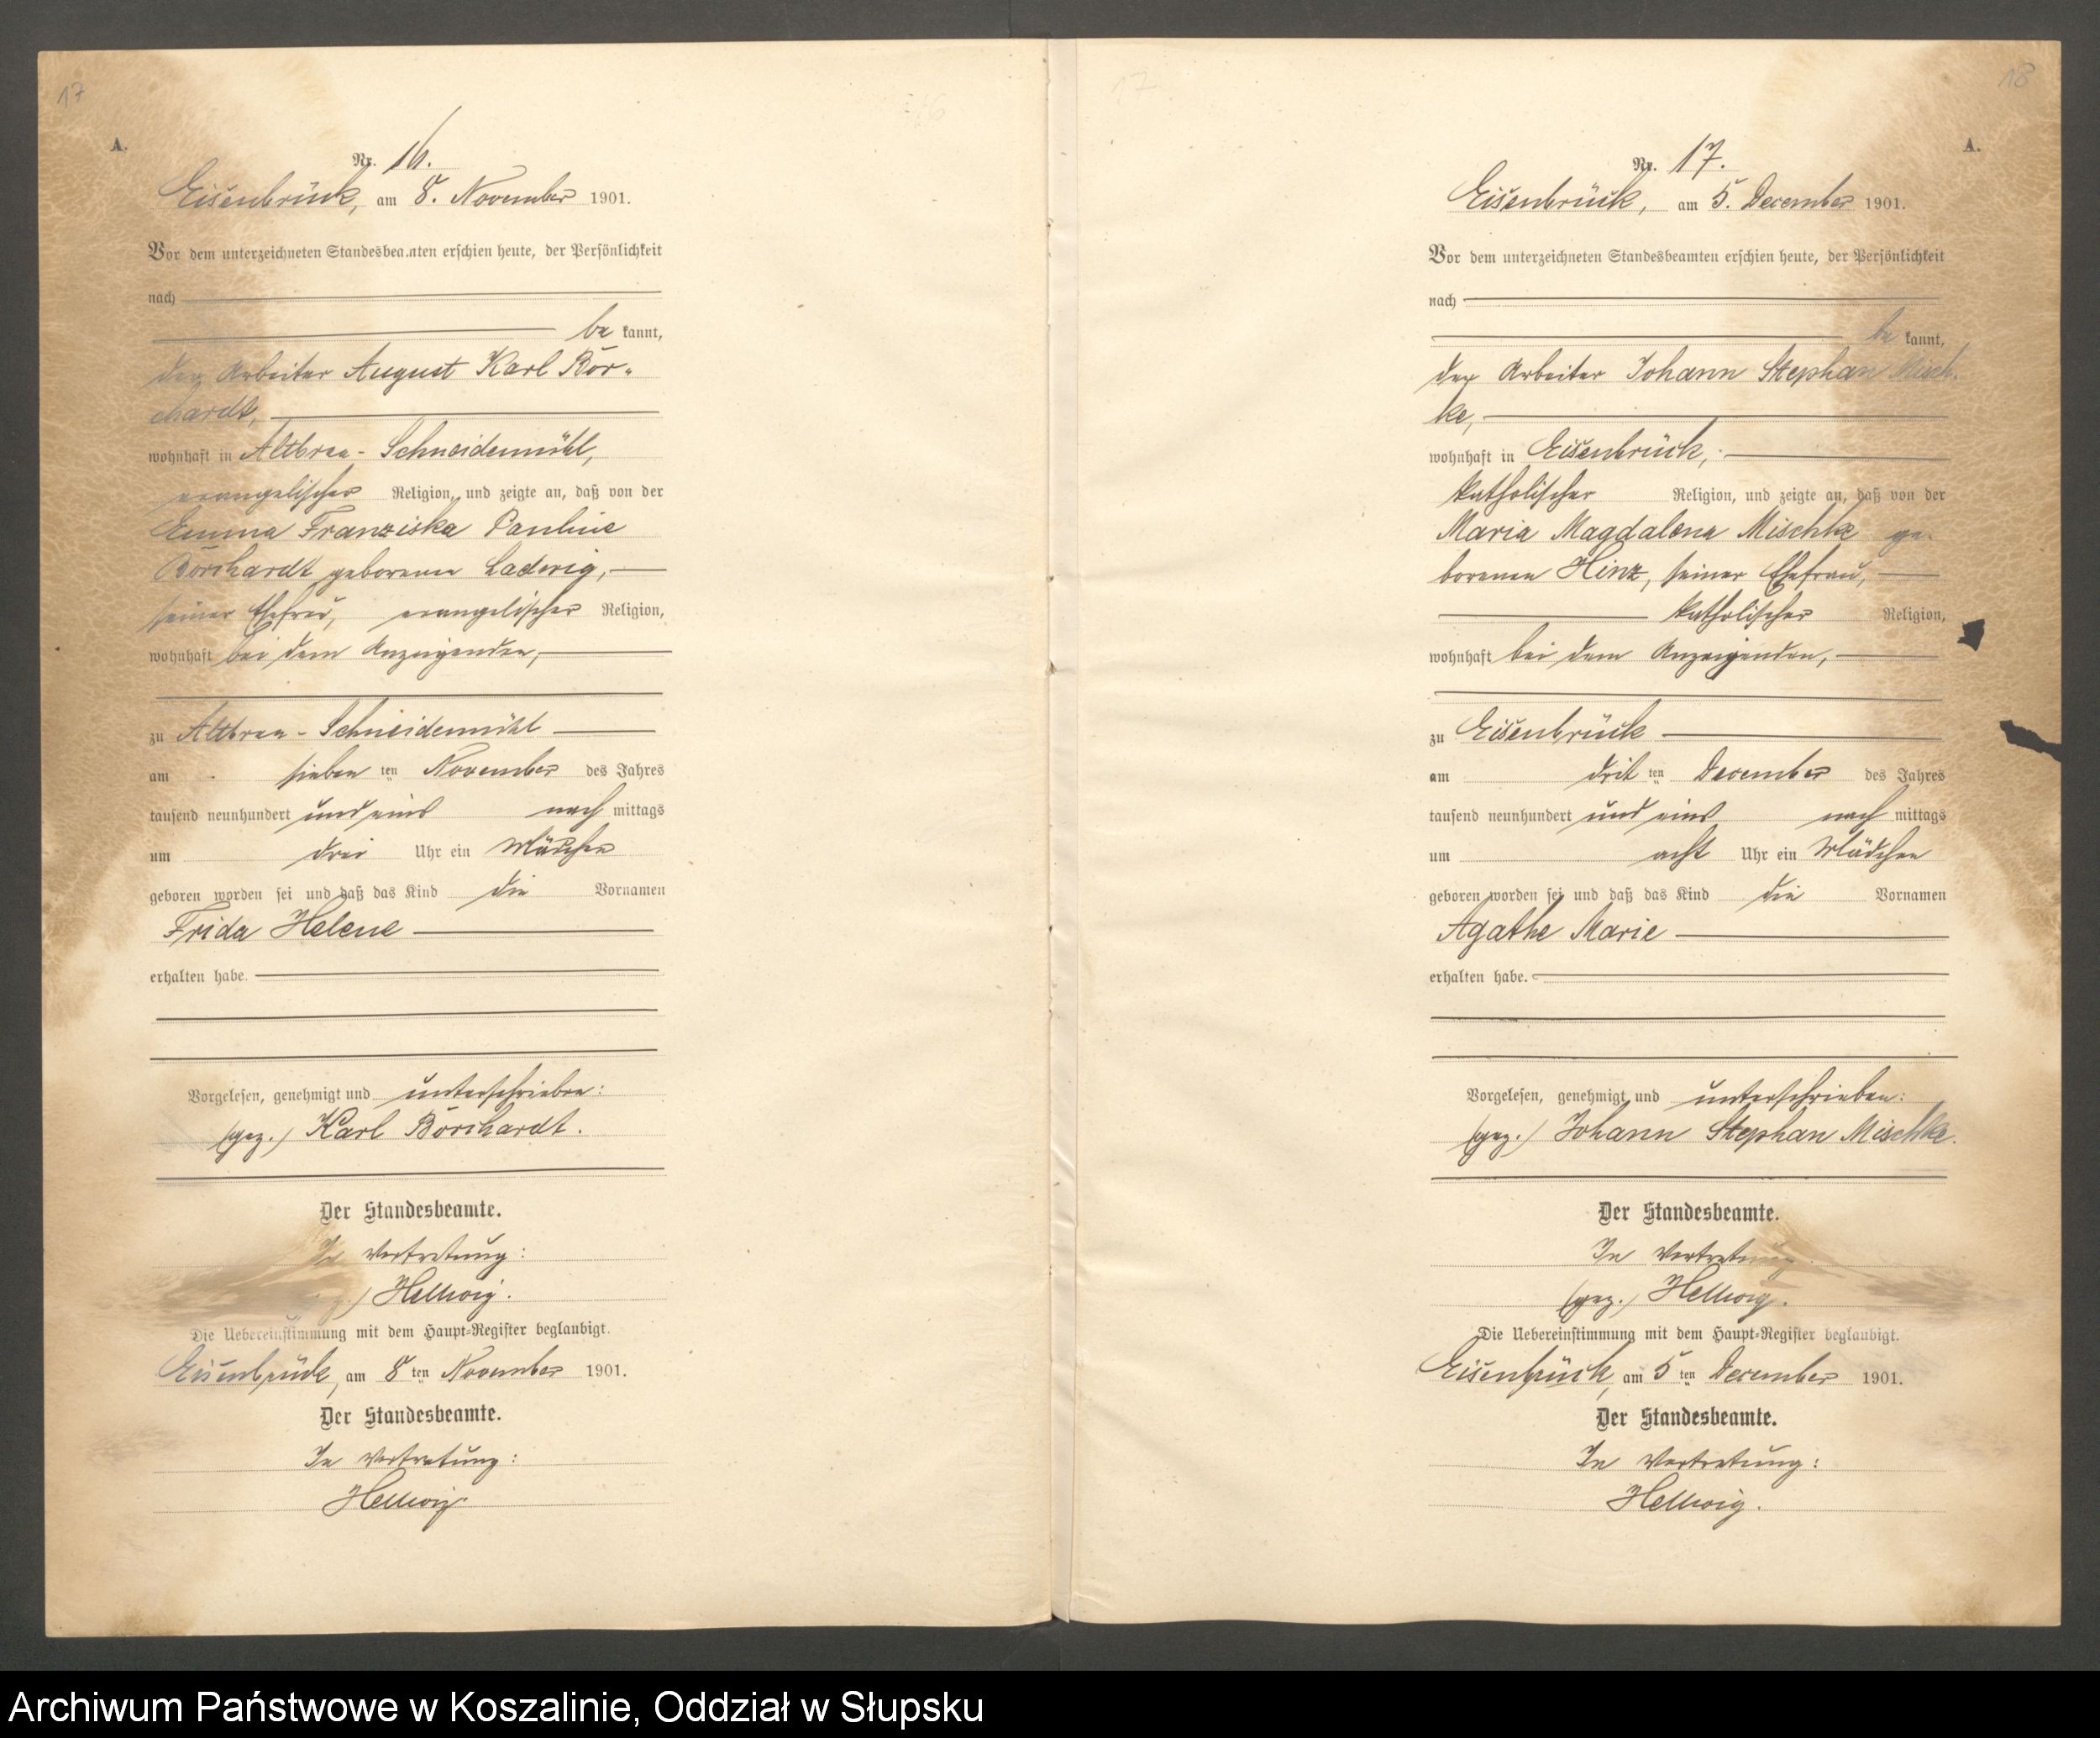 17
A.
Nr. 16.
Eisenbrück, am 8. November 1901.
Vor dem unterzeichneten Standesbeamten erschien heute, der Persönlichkeit
nach
be kannt,
der Arbeiter August Karl Bor-
chardt,
wohnhaft in Altbraa-Schneidemühl,
evangelischer Religion, und zeigte an, daß von der
Emma Franziska Pauline
Borchardt geborenen Ladwig,
seiner Ehefrau, evangelischer Religion,
wohnhaft bei dem Anzeigenden,
zu Altbraa-Schneidemühl
am sieben ten November des Jahres
tausend neunhundert und eins nach mittags
um drei Uhr ein Mädchen
geboren worden sei und daß das Kind die Vornamen
Frida Helene
erhalten habe.
Vorgelesen, genehmigt und unterschrieben:
(gez.) Karl Borchardt.
Der Standesbeamte.
In Vertretung:
Hellwig.
Die Uebereinstimmung mit dem Haupt-Register beglaubigt.
Eisenbrück, am 8 ten November 1901.
Der Standesbeamte.
In Vertretung:
Hellwig.
17
18
A.
Nr. 17.
Eisenbrück, am 5. December 1901.
Vor dem unterzeichneten Standesbeamten erschien heute, der Persönlichkeit
nach
be kannt,
der Arbeiter Johann Stephan Misch-
ke,
wohnhaft in Eisenbrück,
katholischer Religion, und zeigte an, daß von der
Maria Magdalena Mischke ge-
borenen Hinz, seiner Ehefrau,
katholischer Religion,
wohnhaft bei dem Anzeigenden,
zu Eisenbrück
am drit ten December des Jahres
tausend neunhundert und eins nach mittags
um acht Uhr ein Mädchen
geboren worden sei und daß das Kind die Vornamen
Agathe Marie
erhalten habe.
Vorgelesen, genehmigt und unterschrieben:
(gez.) Johann Stephan Mischke.
Der Standesbeamte.
In Vertretung
(gez.) Hellwig.
Die Uebereinstimmung mit dem Haupt-Register beglaubigt.
Eisenbrück, am 5 ten December 1901.
Der Standesbeamte.
In Vertretung:
Hellwig.
Archiwum Państwowe w Koszalinie, Oddział w Słupsku